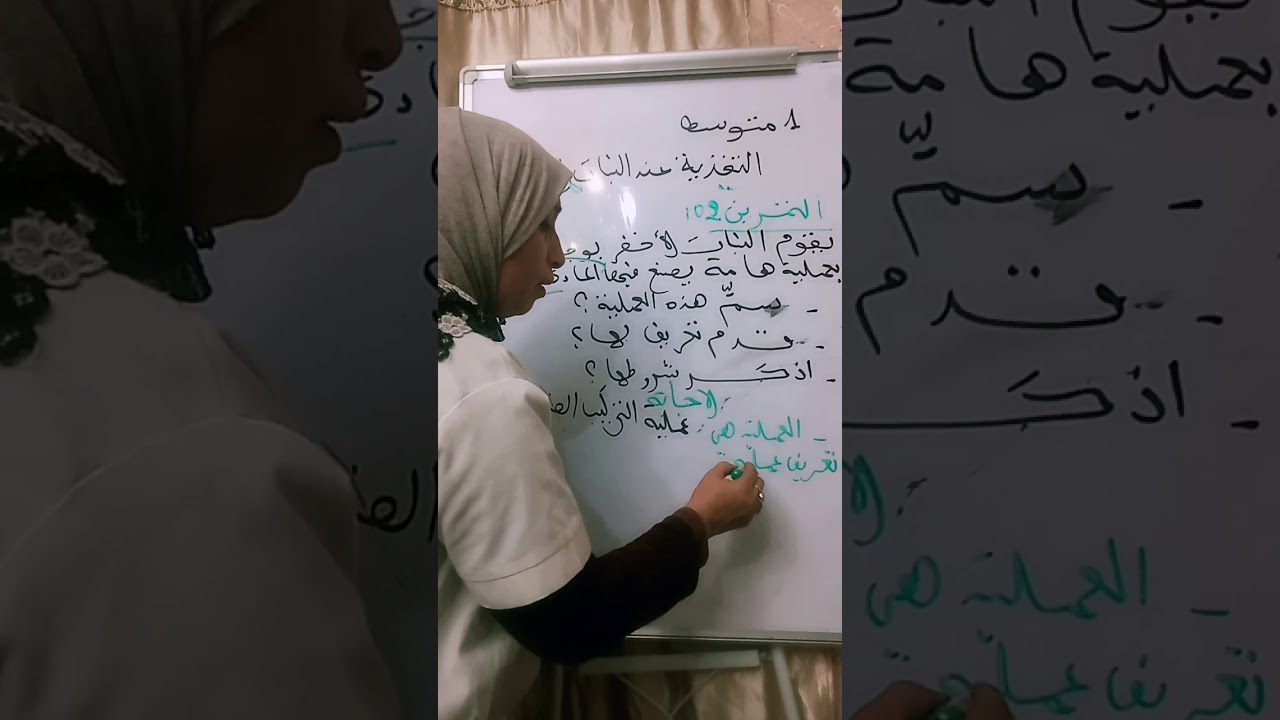 1 متوسط
التغذية عند النبات
التمرين 02:
يقوم النبات الأخضر بوجـ
بعملية هامة يصنع فيها المادة
- سمّ هذه العملية؟
- قدم تعريف لها؟
- اذكـر شروطها؟
الاجابة:
- العملية هي: عملية التركيب الضـ
تعريف عملية